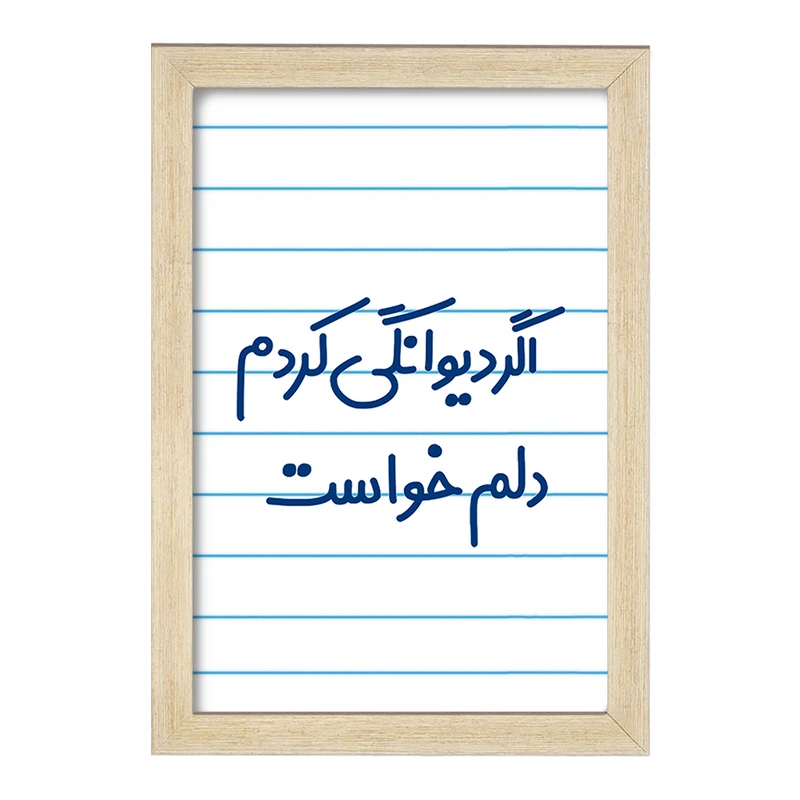 اگر دیوانگی کردم
دلم خواست